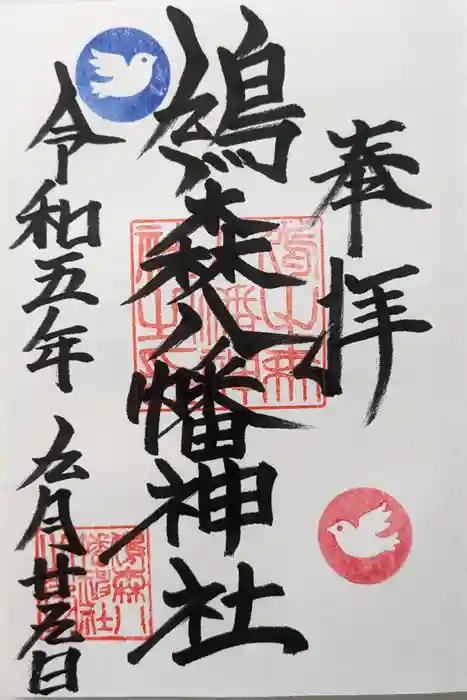 奉拝
鳩森八幡神社
令和五年九月廿日